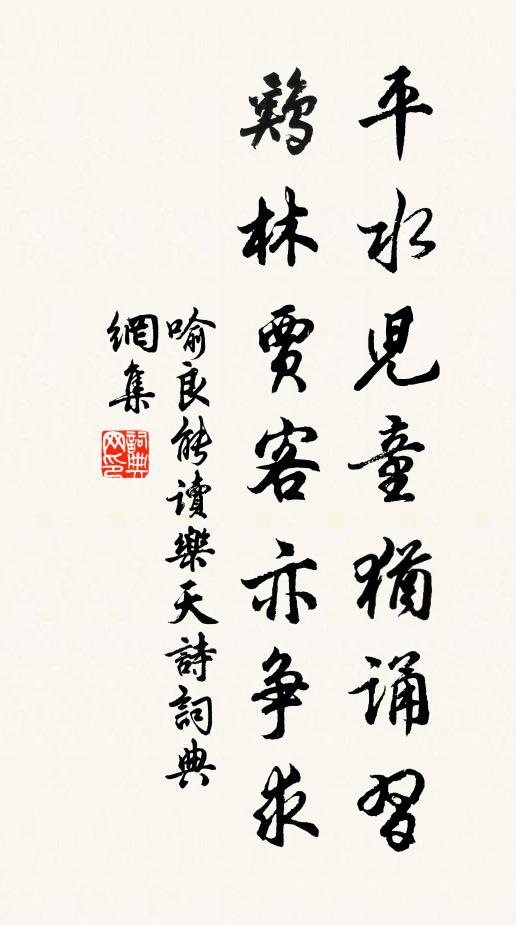 平水児童猶誦習
鷄林賈客亦争求
喻良能讀樂天詩詞典
網集
詞典網印